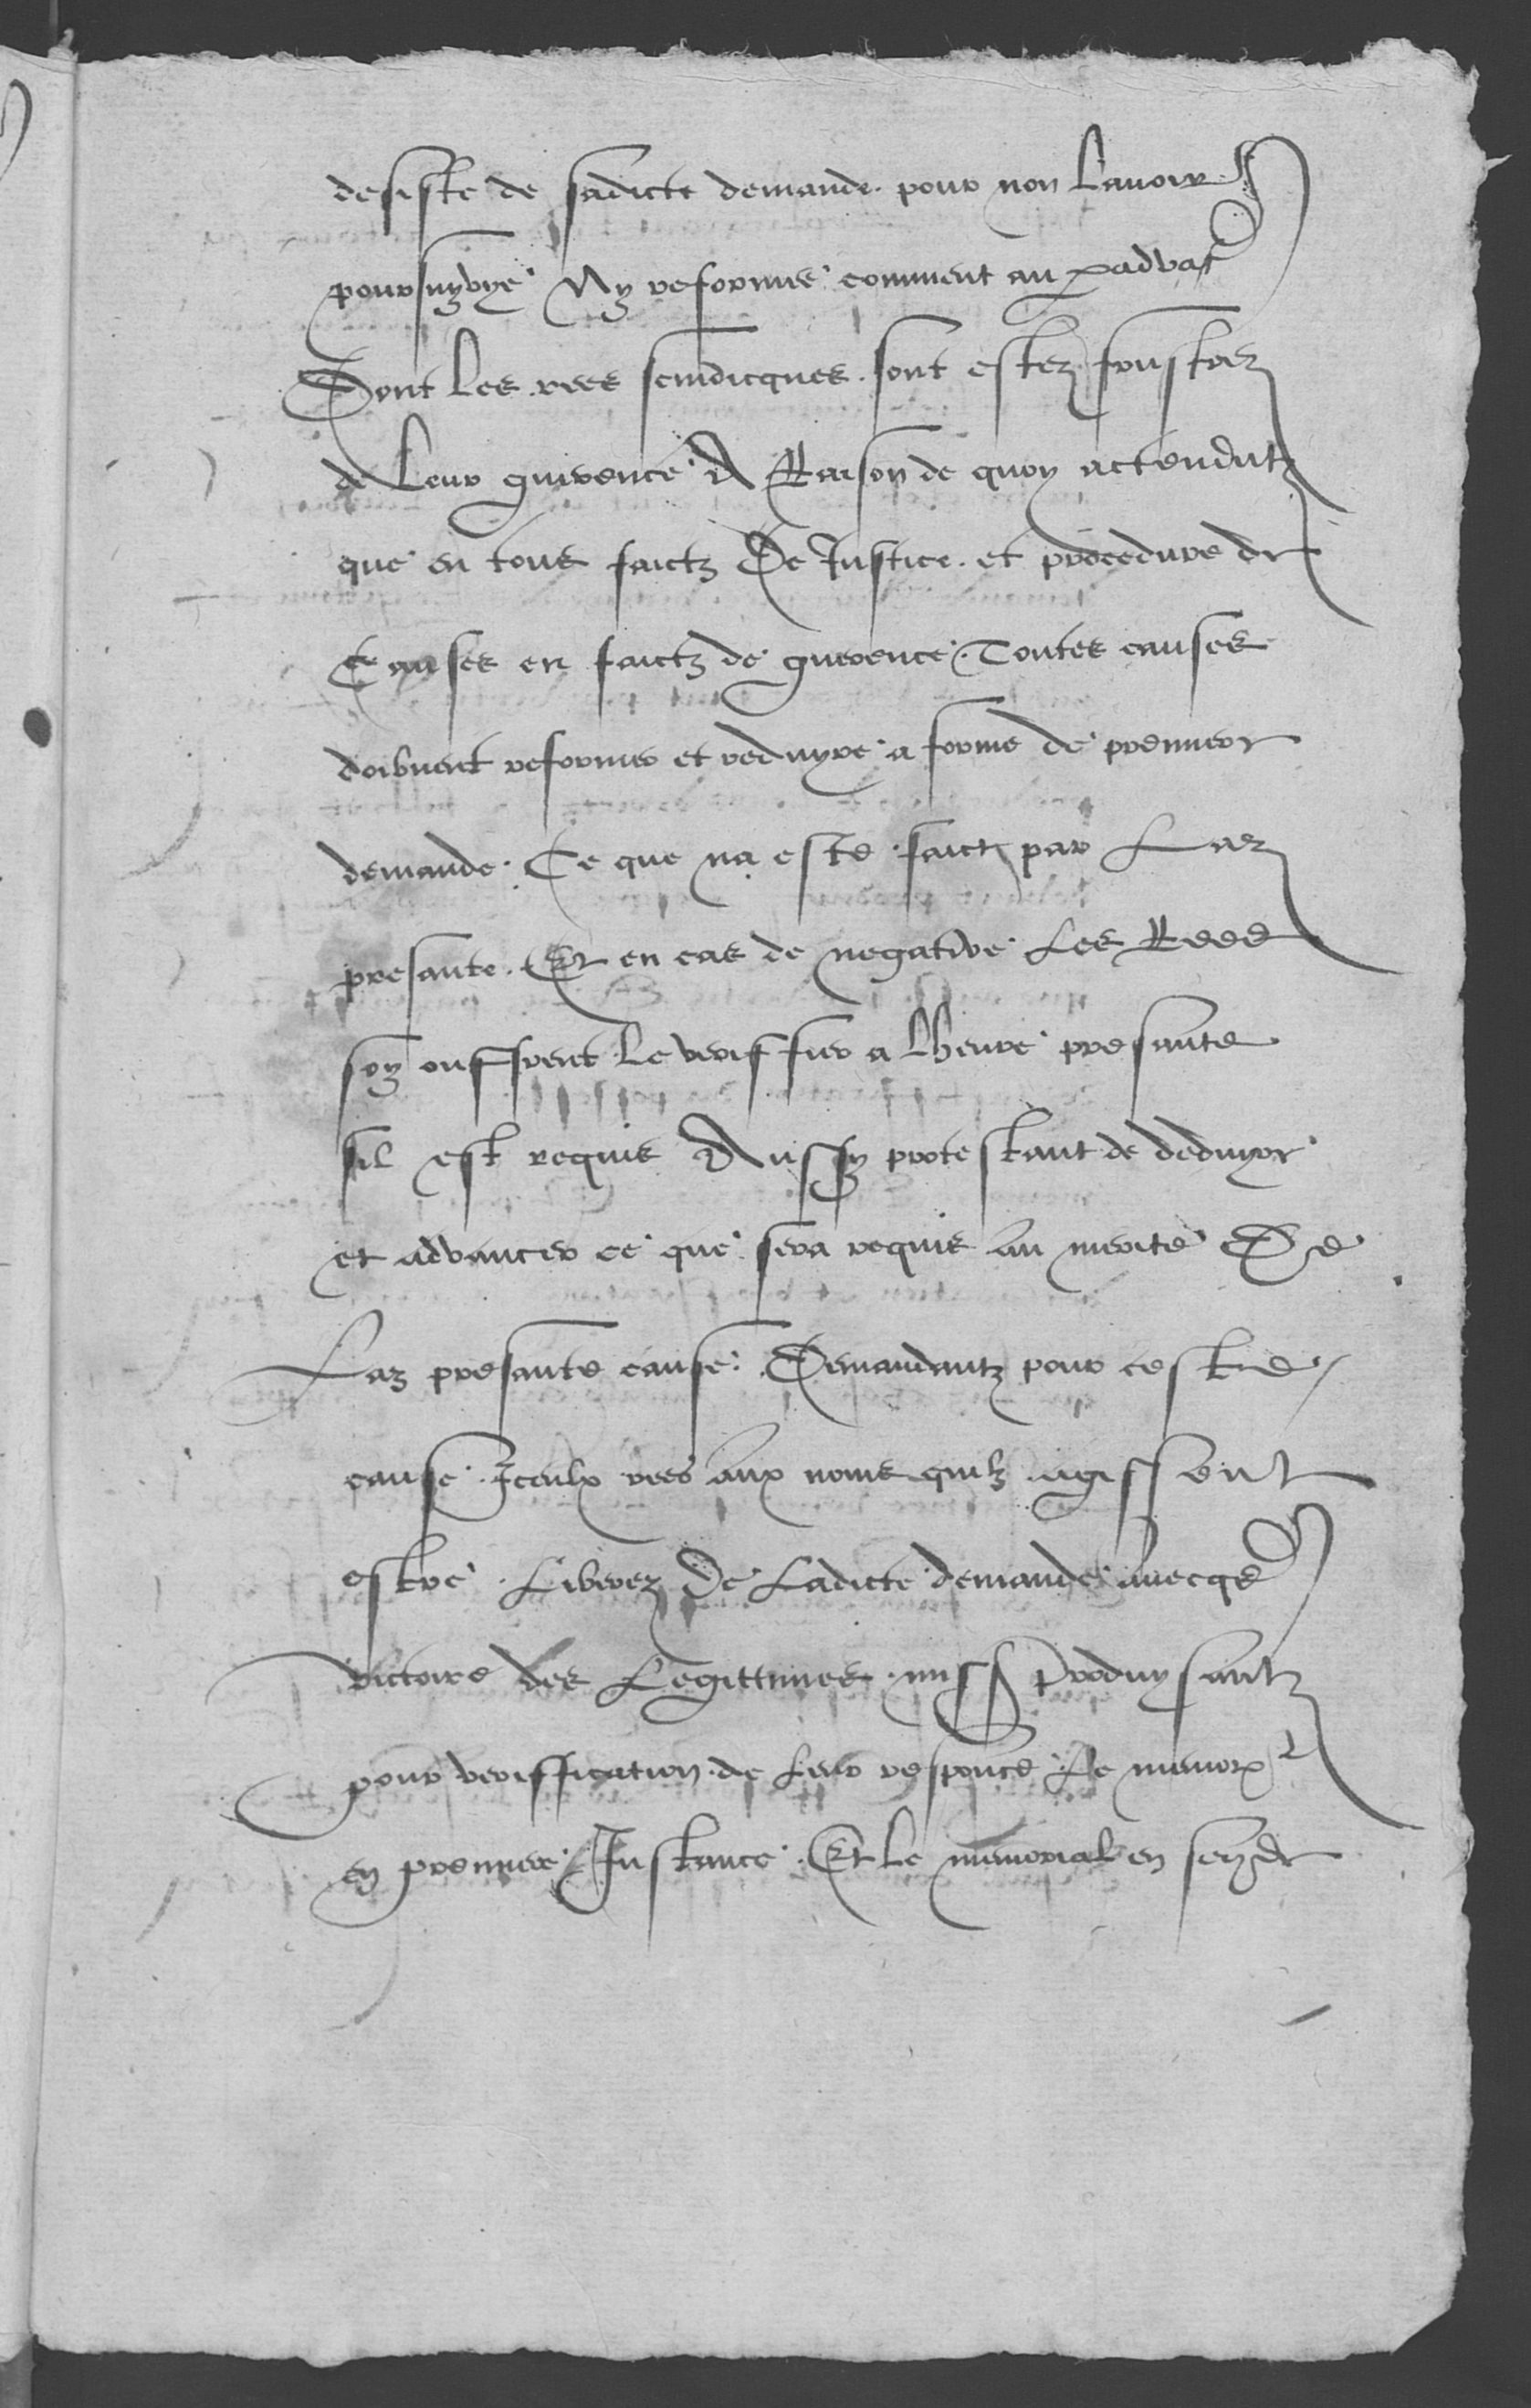 desiste de sadicte demande. pour non Lavoir
poursuyvye Ny reformee comment au padvat
Dont les rees scindicques. sont estez frustrez
de Leur guirence A Raison de quoy actendutz
que en tous faictz De Justice. et procedure de
Causes en faictz de guerence. Toutes causes
doibvent reformer et reduyre a forme de premier
demande. Ce que na este faict par Laz
presante. Et en cas de negative Les Rees
soy ouffrent le veriffier a Lheure presante
sil est requis Aussy protestant de deduyre
et advancer ce que sera requis au merite De
Laz presante cause. Demandantz pour ceste
cause Iceulx rees aux noms quilz agissent
estre Liberez De Ladicte demande avecqs
victoire des Legittimes miss Produysantz
pour veriffication de Leur responce Le memor
en premiere Instance. Et le memorial en